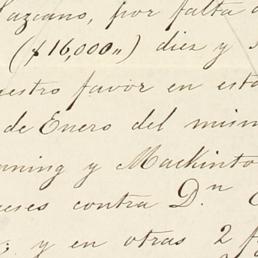 Lazcano, por falta d
($16,000,,) diez y s
uestro favor en esta
de Enero del mism
nning y Mackinto
eses contra D.n C
y en otras 2 f